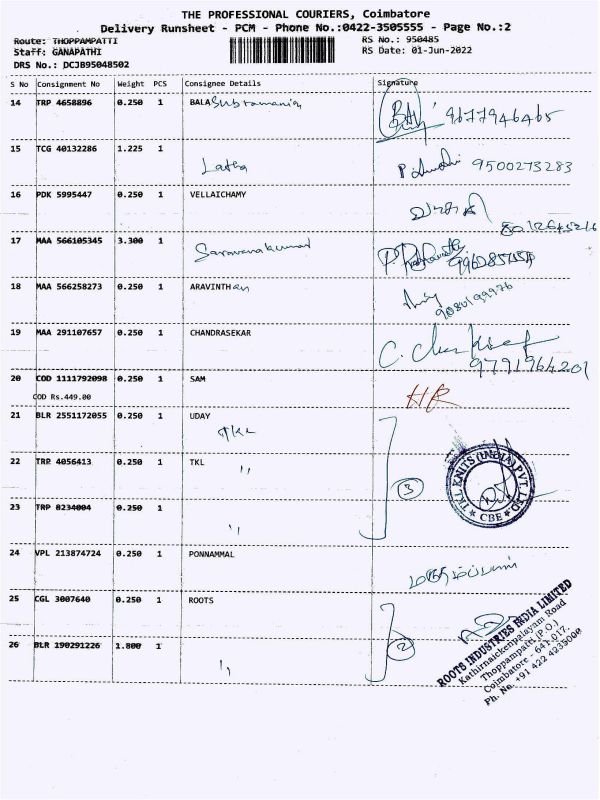 THE PROFESSIONAL COURIERS, Coimbatore
Delivery Runsheet - PCM - Phone No.:0422-3505555 - Page No.:2
Route: THOPPAMPATTI
RS No.: 950485
Staff: GANAPATHI
RS Date: 01-Jun-2022
DRS No.: DCJB95048502
S No Consignment No Weight PCS Consignee Details Signature
14 TRP 4658896 0.250 1 BALASubramaniam 9677946465
15 TCG 40132286 1.225 1
Latha 9500273283
16 PDK 5995447 0.250 1 VELLAICHAMY
8012645216
17 MAA 566105345 3.300 1 Saravanakumar
18 MAA 566258273 0.250 1 ARAVINTHan
19 MAA 291107657 0.250 1 CHANDRASEKAR
9791964201
20 COD 1111792098 0.250 1 SAM HR
COD Rs.449.00
21 BLR 2551172055 0.250 1 UDAY
TKL
22 TRP 4056413 0.250 1 TKL
,,
3
TKL KNITS (INDIA) PVT. LTD
* CBE *
23 TRP 8234004 0.250 1
,,
24 VPL 213874724 0.250 1 PONNAMMAL
25 CGL 3007640 0.250 1 ROOTS
26 BLR 190291226 1.800 1
,,
2
ROOTS INDUSTRIES INDIA LIMITED
Kathirnaickenpalayam Road
Thoppampatti (P.O.)
Coimbatore - 641-017.
Ph. No. +91 422 4235000